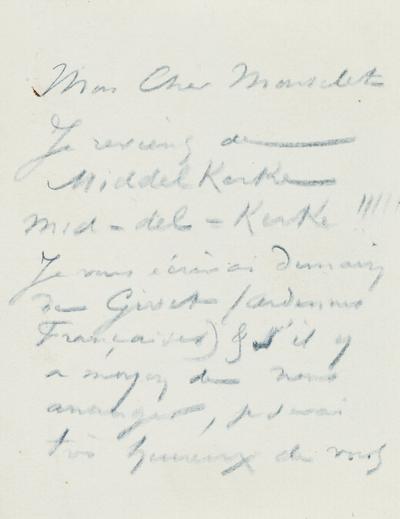 Mon Cher Monselet
Je reviens de
MiddelKerke
Mid-del-Kerke !!!!!
Je vous écrirai demain
de Givet (ardennes
Françaises) & s'il y
a moyen de nous
arranger, je serai
très heureux de vous